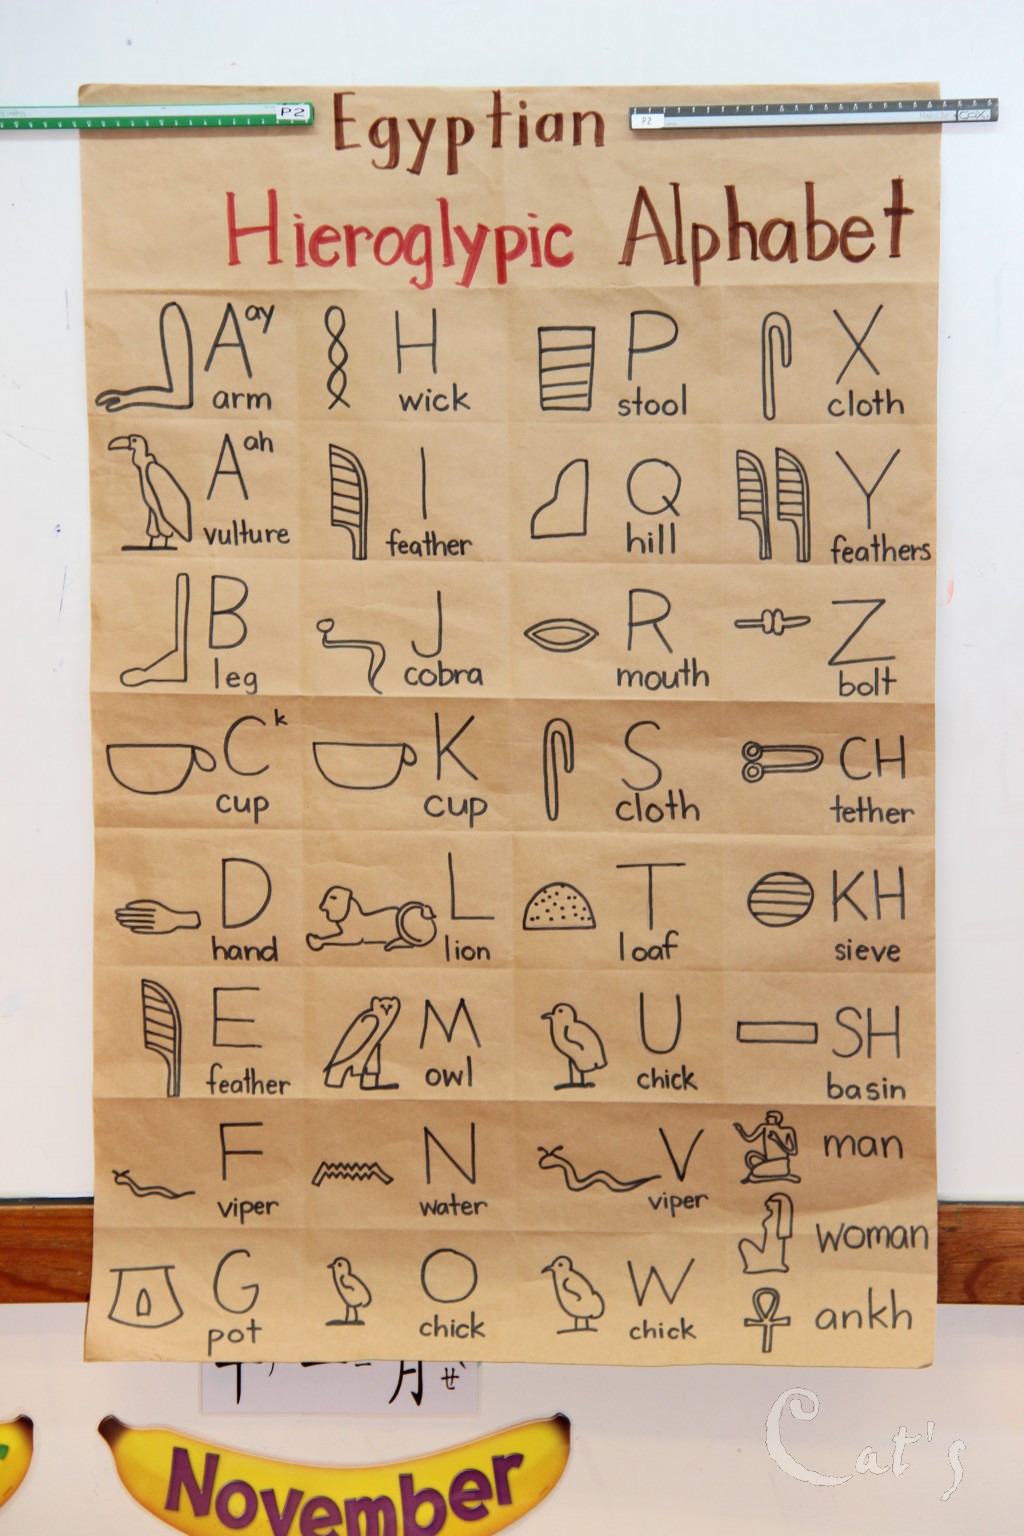 P2
P2
Egyptian
Hieroglypic Alphabet
A ay
arm
H
wick
P
stool
X
cloth
A ah
vulture
I
feather
Q
hill
Y
feathers
B
leg
J
cobra
R
mouth
Z
bolt
C k
cup
K
cup
S
cloth
CH
tether
D
hand
L
lion
T
loaf
KH
sieve
E
feather
M
owl
U
chick
SH
basin
F
viper
N
water
V
viper
man
woman
G
pot
O
chick
W
chick
ankh
November
Cat's